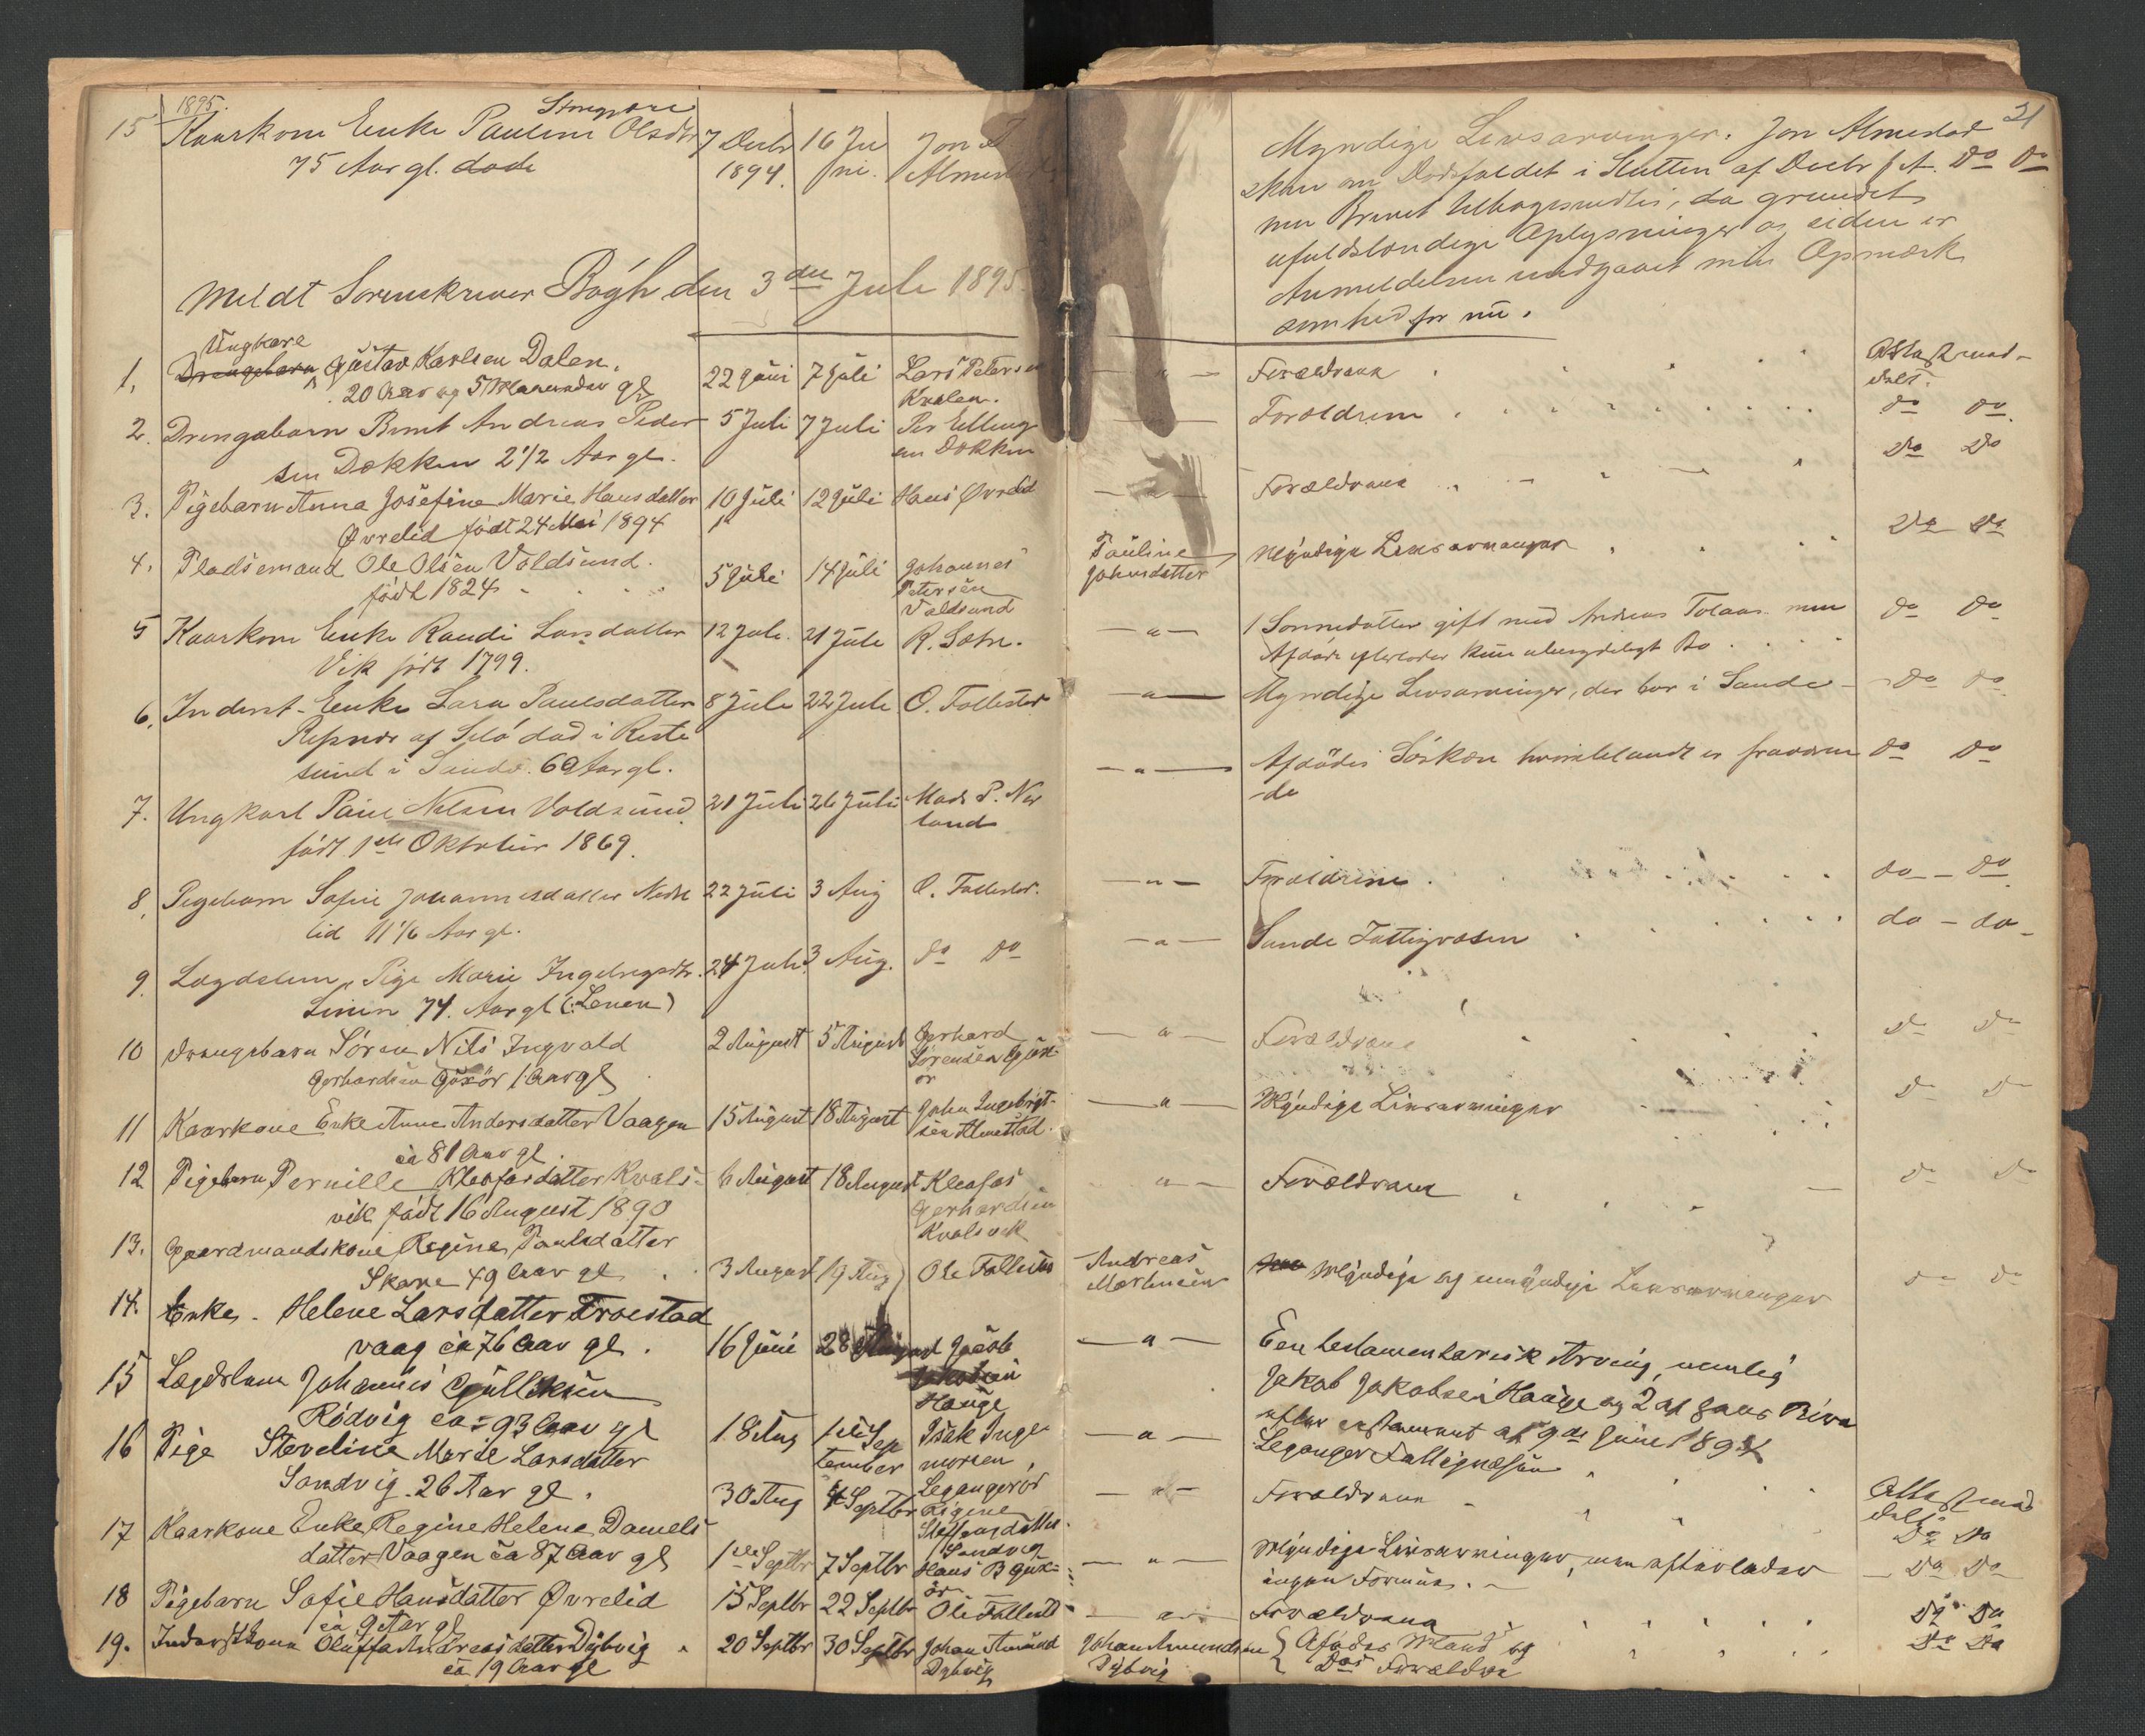 1895.
15 Kaarkone Enke Pauline Olsdtr 7 Decbr 16 Ju Jon
75 Aar gl. døde 1894. ni. Almestad
Meldt Sorenskriver Bøgh den 3die Juli 1895.
Ungkarl
1. Drengebarn Gustav Karlsen Dalen. 22 Juni 7 Juli Lars Petersen
20 Aar og 5 Maaneder gl Kvalen.
2. Drengebarn Bernt Andreas Peder 5 Juli 7 Juli Per Elling
sen Dokken 2 1/2 Aar gl. sen Dokken
3. Pigebarn Anna Josefine Marie Hansdatter 10 Juli 12 Juli Hans Øvrelid
Øvrelid født 24 Mai 1894
4. Pladsemand Ole Olsen Voldsund. 5 Juli 14 Juli Johannes
født 1824 Petersen
Voldsund
5 Kaarkone Enke Randi Larsdatter 12 Juli. 21 Juli R. Sætre.
Vik født 1799.
6. Inderst-Enke Lara Paulsdatter 8 Juli 22 Juli O. Follestad
af Selø død i
sund i Sande. 69 Aar gl.
7. Ungkarl Paul Nelsen Voldsund 21 Juli 26 Juli Mads P. Nør
født 1ste Oktober 1869. land
8. Pigebarn Sofie Johannesdatter Nedre 22 Juli 3 Aug O. Follestad.
lid 11 1/6 Aar gl.
9. Lægdslem, Pige Marie Ingebrigtsdtr. 24 Juli 3 Aug. do do
74. Aar gl (: Lenen)
10 Drengebarn Søren Nils Ingvald 2 August 5 August Gerhard
Gerhardsen Gjøsør 1 Aar gl Sørensen Gjøs-
ør
11 Kaarkone Enke Anne Andersdatter Vaagen 15 August 18 August John Ingebrigt-
ca 81 Aar gl. sen Almestad.
12 Pigebarn Pernille Kleofasdatter Kvals- 6 August 18 August Kleofas
vik født 16 August 1890 Gerhardsen
Kvalsvik
13. Gaardmandskone Regine Paulsdatter
Skare 49 Aar gl. 3 August 19 Aug Ole Follestad
14. Enke. Helene Larsdatter Troestad
vaag ca 76 Aar gl. 16 Juni 28 August Jacob
Jakobsen
Hauge
15 Lægdslem Johannes Gulliksen
Rødvig ca 93 Aar gl 18 Aug 1ste Sep Isak Inge
tember morsen,
Leganger
16 Pige Steveline Marie Larsdatter
Sandvig. 26 Aar gl. 30 Aug 4 Septbr Regine
Steffensdatter
Sandvig
17 Kaarkone Enke Regine Helene Daniels
datter Vaagen ca 87 Aar gl 1ste Septbr 7 Septbr Hans B Gjøs-
ør
18 Pigebarn Sofie Hansdatter Øvrelid 15 Septbr 22 Septbr Ole Follestad
ca 9 Aar gl
19. Inderstkone Oluffa Andreasdatter Dybvig 20 Septbr 30 Septbr Johan Amund
ca 19 Aar gl Dybvig
21
Myndige Livsarvinger. Jon Almestad
skrev om Dødsfaldet i Slutten af Decbr f. A. do do
men Brevet tilbagesendtes, da grundet
ufuldstændige Oplysninger og siden er
Anmeldelsen undgaaet min Opmærk
somhed før nu.
— " — Forældrene Attest med-
delt.
Forældrene do do
— " — Forældrene do do
Pauline Johnsdatter Myndige Livsarvinger do do
— " — 1 Sønnedatter gift med Andreas men do do
Afdøde efterlader kun ubetydeligt Bo
— " — Myndige Livsarvinger, der bor i Sande do do
— " — Afdødes Søsken hvoriblandt er fraværen do do
-de
— " — Forældrene do do
— " — Sande Fattigvæsen do do
— " — Forældrene do do
— " — Myndige Livsarvinger do do
— " — Forældrene do do
Andreas Martinsen Myndige og umyndige Livsarvinger do do
— " — Een testamentarisk Arving, nemlig
Jakob Jakobsen Hauge og 2 af hans Børn
efter testament af 9de Juni 1894
— " — Leganger Fattigvæsen
— " — Forældrene Attest med
delt
— " — Myndige Livsarvinger, men efterlader do do
ingen Formue. do do
— " — Forældrene do do
Johan Amundsen Dybvig { Afdødes Mand og do do
Dos Forældre